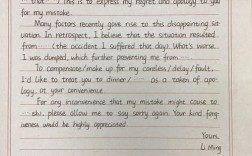 that ... This is to express my regret and apology to you
for my mistake.
Many factors recently gave rise to this disappointing si-
tuation. In retrospect, I believe that the situation resulted
from ... (the accident I suffered that day). What's worse,
I was dumped, which further preventing me from ...
To compensate/make up for my careless/delay/fault,
I'd like to treat you to dinner/ ... as a token of apo-
logy, at your convenience.
For any inconvenience that my mistake might cause to
you, please allow me to say sorry again. Your kind forgi-
veness would be highly appreciated.
Yours,
Li Ming